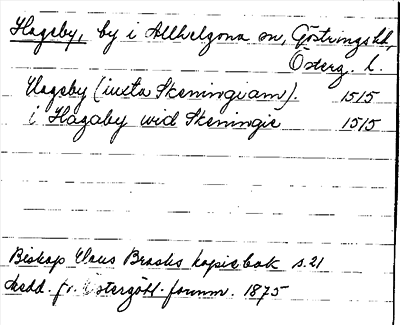 Hageby, by i Allhelgona sn, Göstrings hd,
Österg. l.
Hageby (iuxta Skeningiam). 1515
i Hagaby wid Skeningie 1515
Biskop Claus Brasks kopiebok s. 21
Medd. fr. Östergötl. fornm. 1875